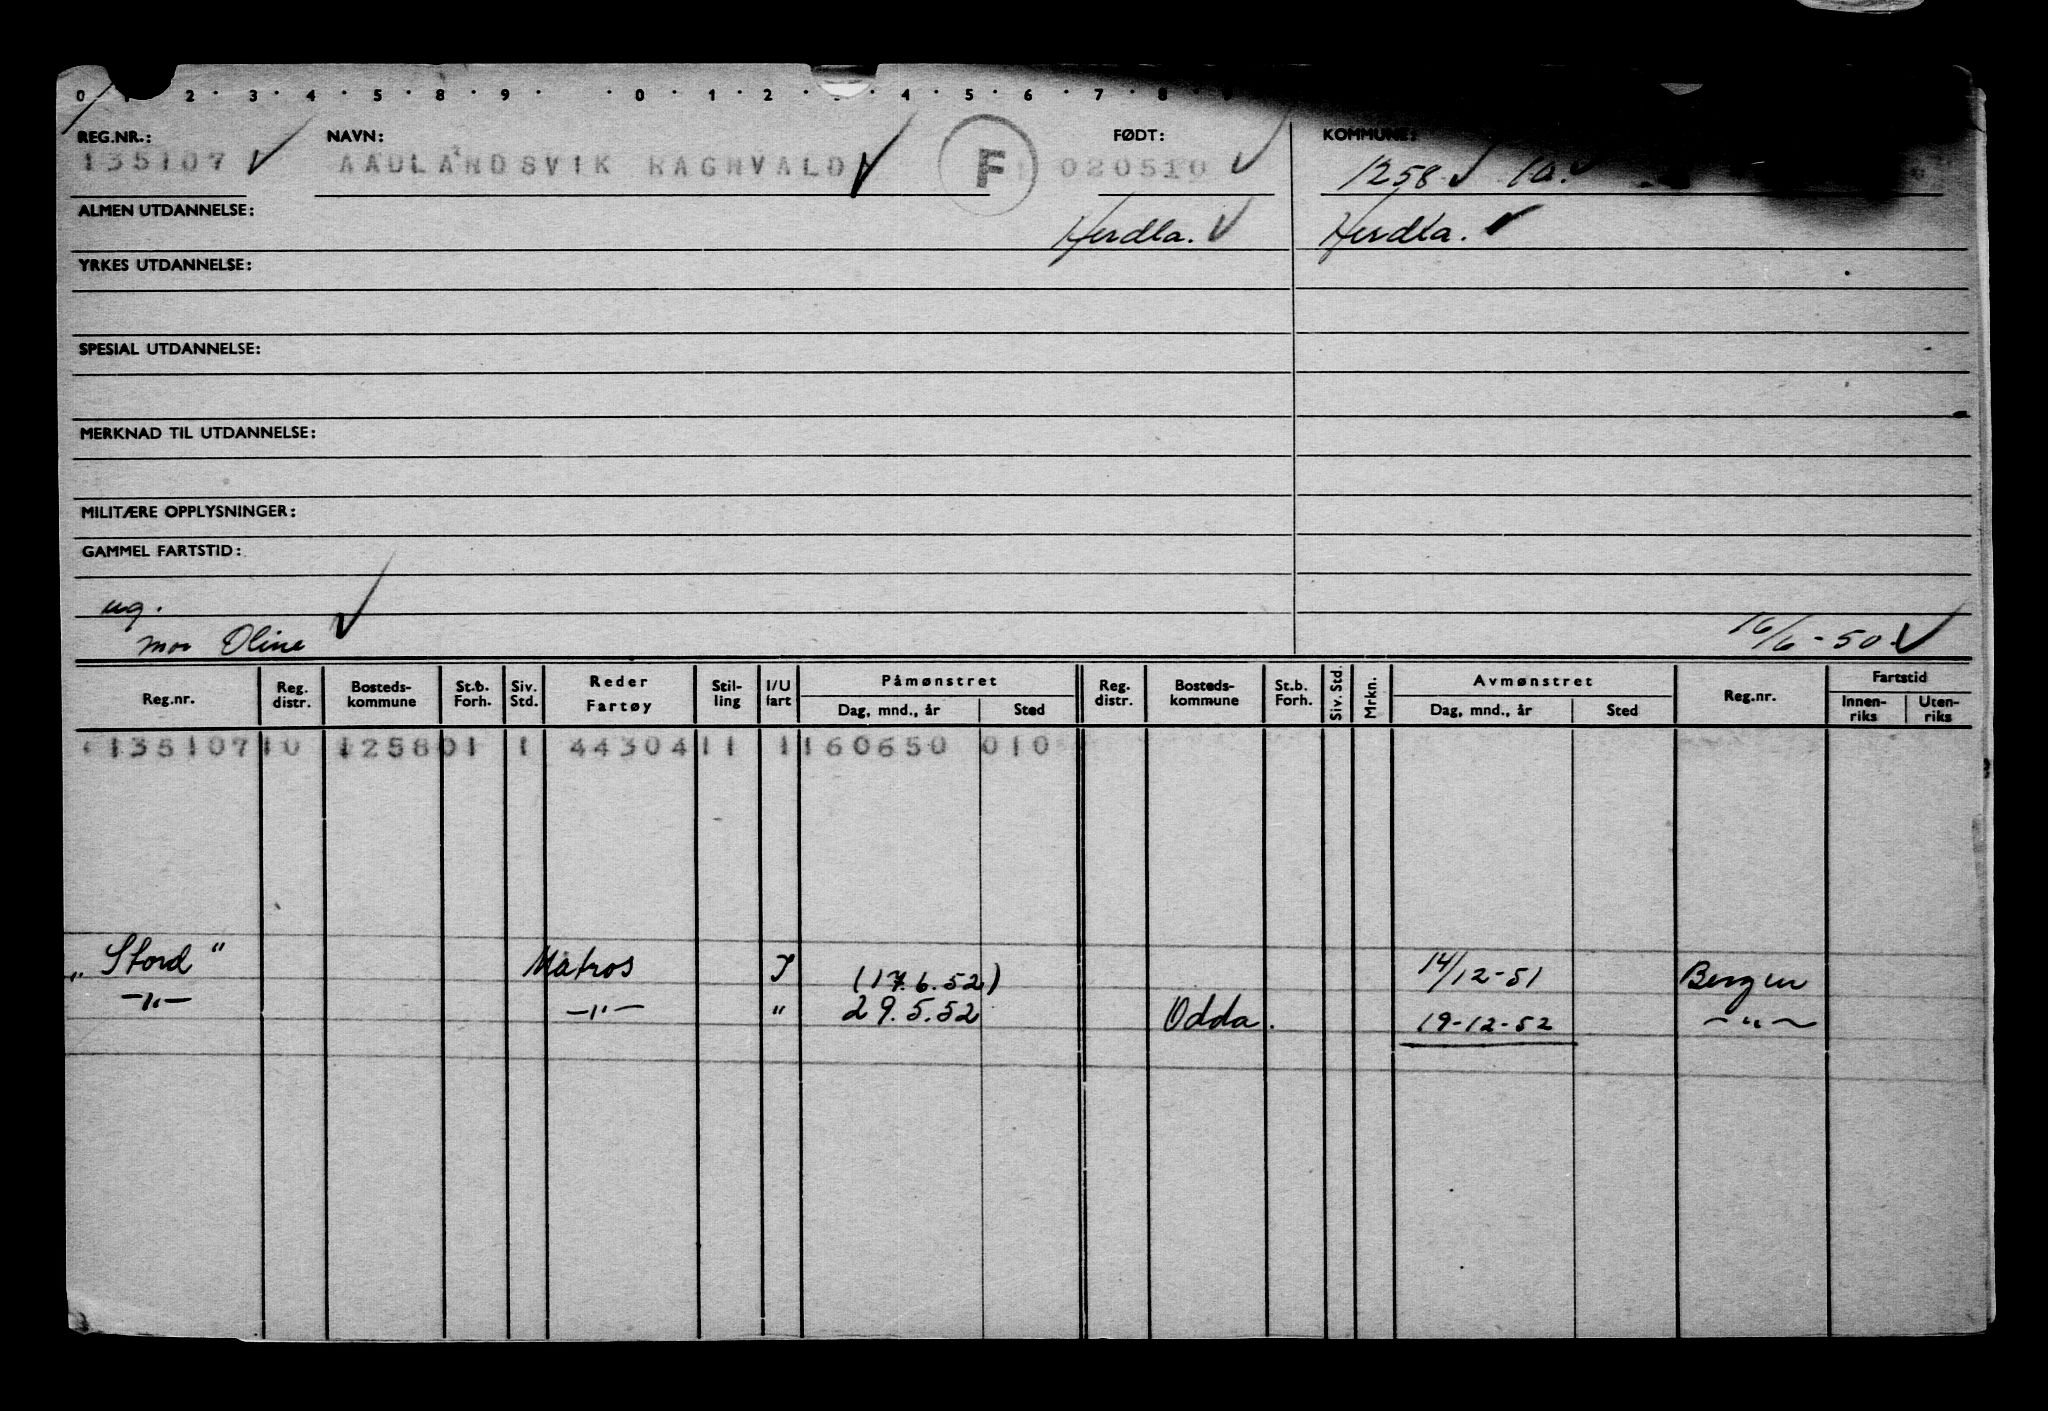 0 1 2 3 4 5 8 9 0 1 2 3 4 5 6 7 8
REG.NR.: NAVN: FØDT: KOMMUNE:
135107 AADLANDSVIK RAGNVALD F 020510 1258 10.
ALMEN UTDANNELSE: Herdla. Herdla.
YRKES UTDANNELSE:
SPESIAL UTDANNELSE:
MERKNAD TIL UTDANNELSE:
MILITÆRE OPPLYSNINGER:
GAMMEL FARTSTID:
ug.
mor Oline 16/6-50.
Reg.nr. Reg. distr. Bosteds-kommune St.b. Forh. Siv. Std. Reder Fartøy Stil-ling I/U fart Påmønstret Dag, mnd., år Sted Reg. distr. Bosteds-kommune St.b. Forh. Siv. Std. Mrkn. Avmønstret Dag, mnd., år Sted Reg.nr. Fartstid Innen-riks Uten-riks
135107 10 1258 01 1 44304 11 1 160650 010
"Stord" Matros I (17.6.52) 14/12-51 Bergen
-"- -"- " 29.5.52 Odda. 19-12-52 -"-